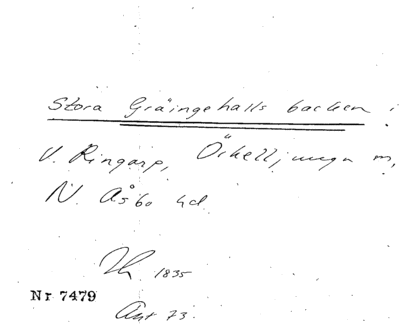 Stora Gråingehalls backen i
V. Ringarp, Örkelljunga m,
N. Åsbo hd.
1835
Nr 7479
Ant 73.